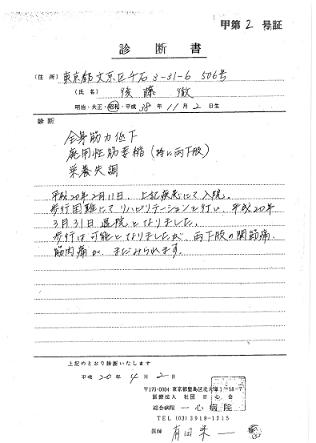 甲第2号証
診断書
(住所) 東京都文京区千石3-31-6 506号
(氏名) 後藤 徹
明治・大正・昭和・平成 38年11月2日生
診断
全身筋力低下
廃用性筋萎縮(特に両下肢)
栄養失調
平成20年2月11日、上記疾患にて入院。
歩行困難にてリハビリテーションを行い、平成20年
3月31日退院となりました。
歩行は可能となりましたが、両下肢の関節痛、
筋肉痛が、まだみられます。
上記のとおり診断いたします
平成20年4月2日
〒170-0004 東京都豊島区北大塚1-18-7
医療法人 社団 日心会
総合病院 一心病院
TEL (03) 3918-1215
医師 有田